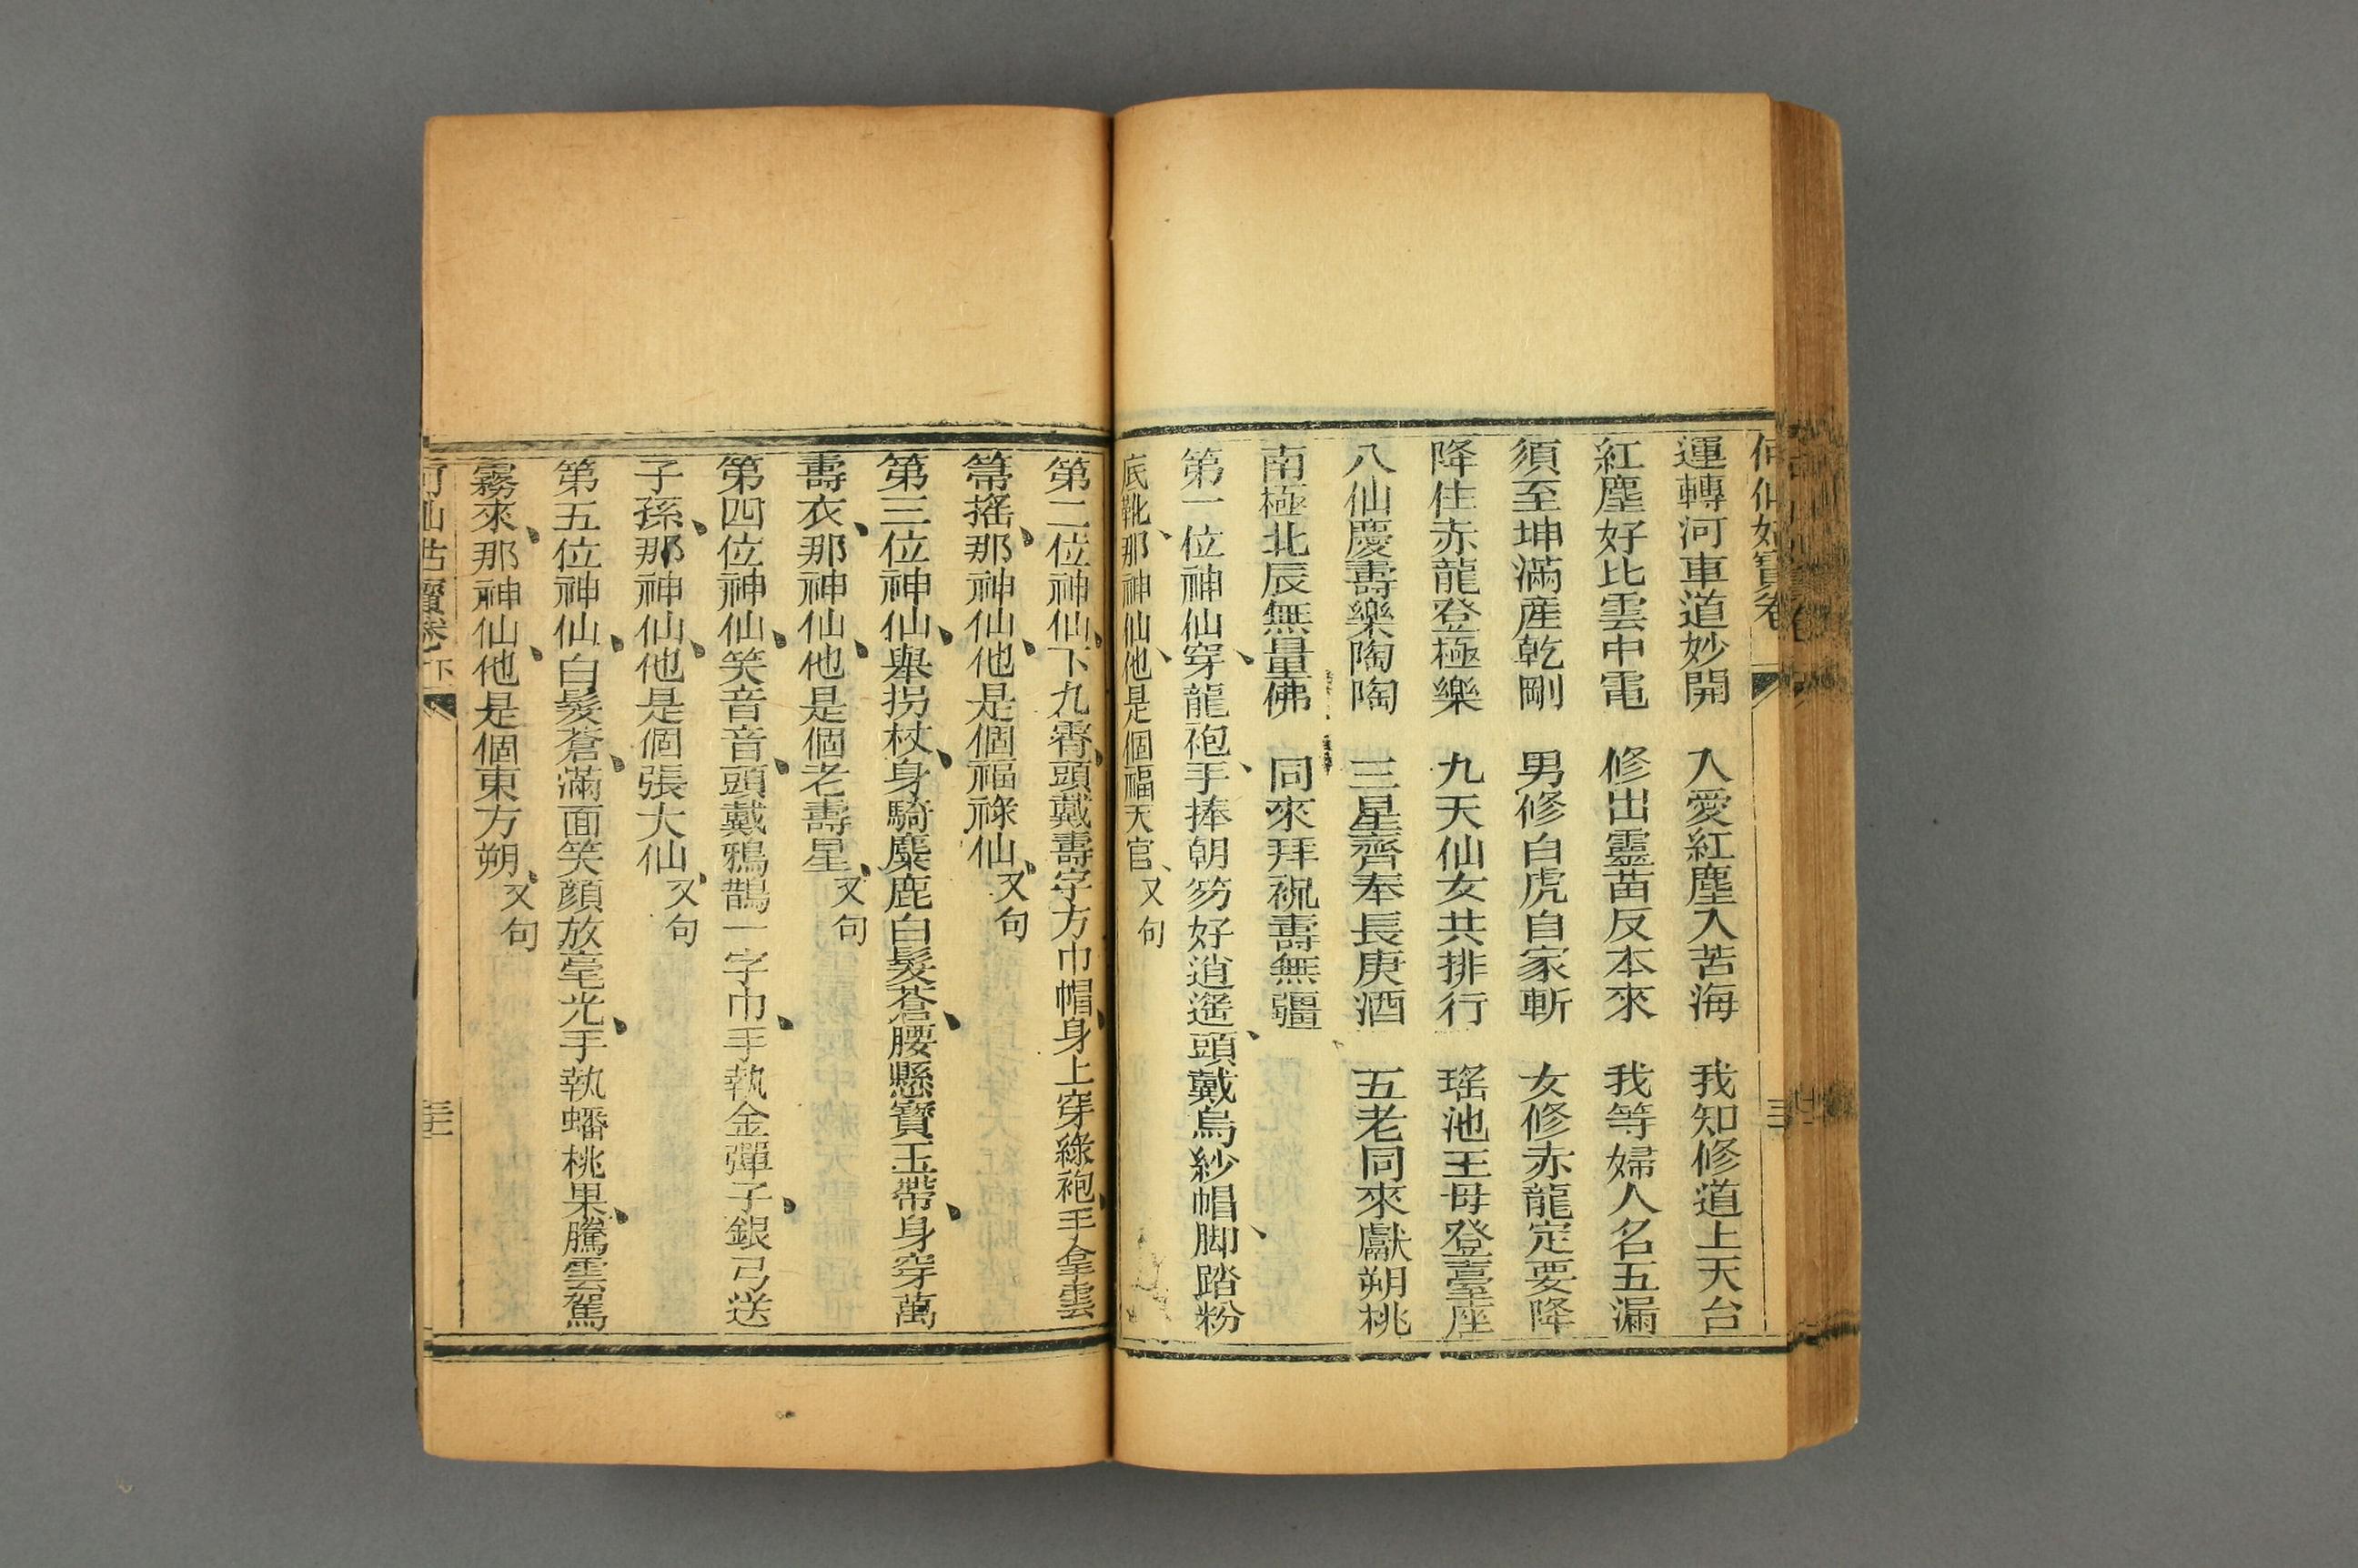 何仙姑寳卷
運轉河車道妙開 入愛紅塵入苦海 我知修道上天台
紅塵好比雲中電 修出靈苗反本來 我等婦人名五漏
須至坤滿産乾剛 男修白虎自家斬 女修赤龍定要降
降住赤龍登極樂 九天仙女共排行 瑤池王母登臺座
八仙慶壽樂陶陶 三星齊奉長庚酒 五老同來獻朔桃
南極北辰無量佛 同來拜祝壽無疆
第一位神仙、穿龍袍、手捧朝笏好逍遥、頭戴烏紗帽、脚踏粉
底靴、那神仙、他是個福天官、又句
第二位神仙、下九霄、頭戴壽字方巾帽、身上穿綠袍、手拿雲
箒搖、那神仙、他是個福祿仙、又句
第三位神仙、舉拐杖、身騎麋鹿白髮蒼、腰懸寶玉帶、身穿萬
壽衣、那神仙、他是個老壽星、又句
第四位神仙、笑音音、頭戴鴉鵲一字巾、手執金彈子、銀弓送
子孫、那神仙、他是個張大仙、又句
第五位神仙、白髮蒼、滿面笑顔放毫光、手執蟠桃果、騰雲駕
霧來、那神仙、他是個東方朔、又句
何仙姑寳卷下